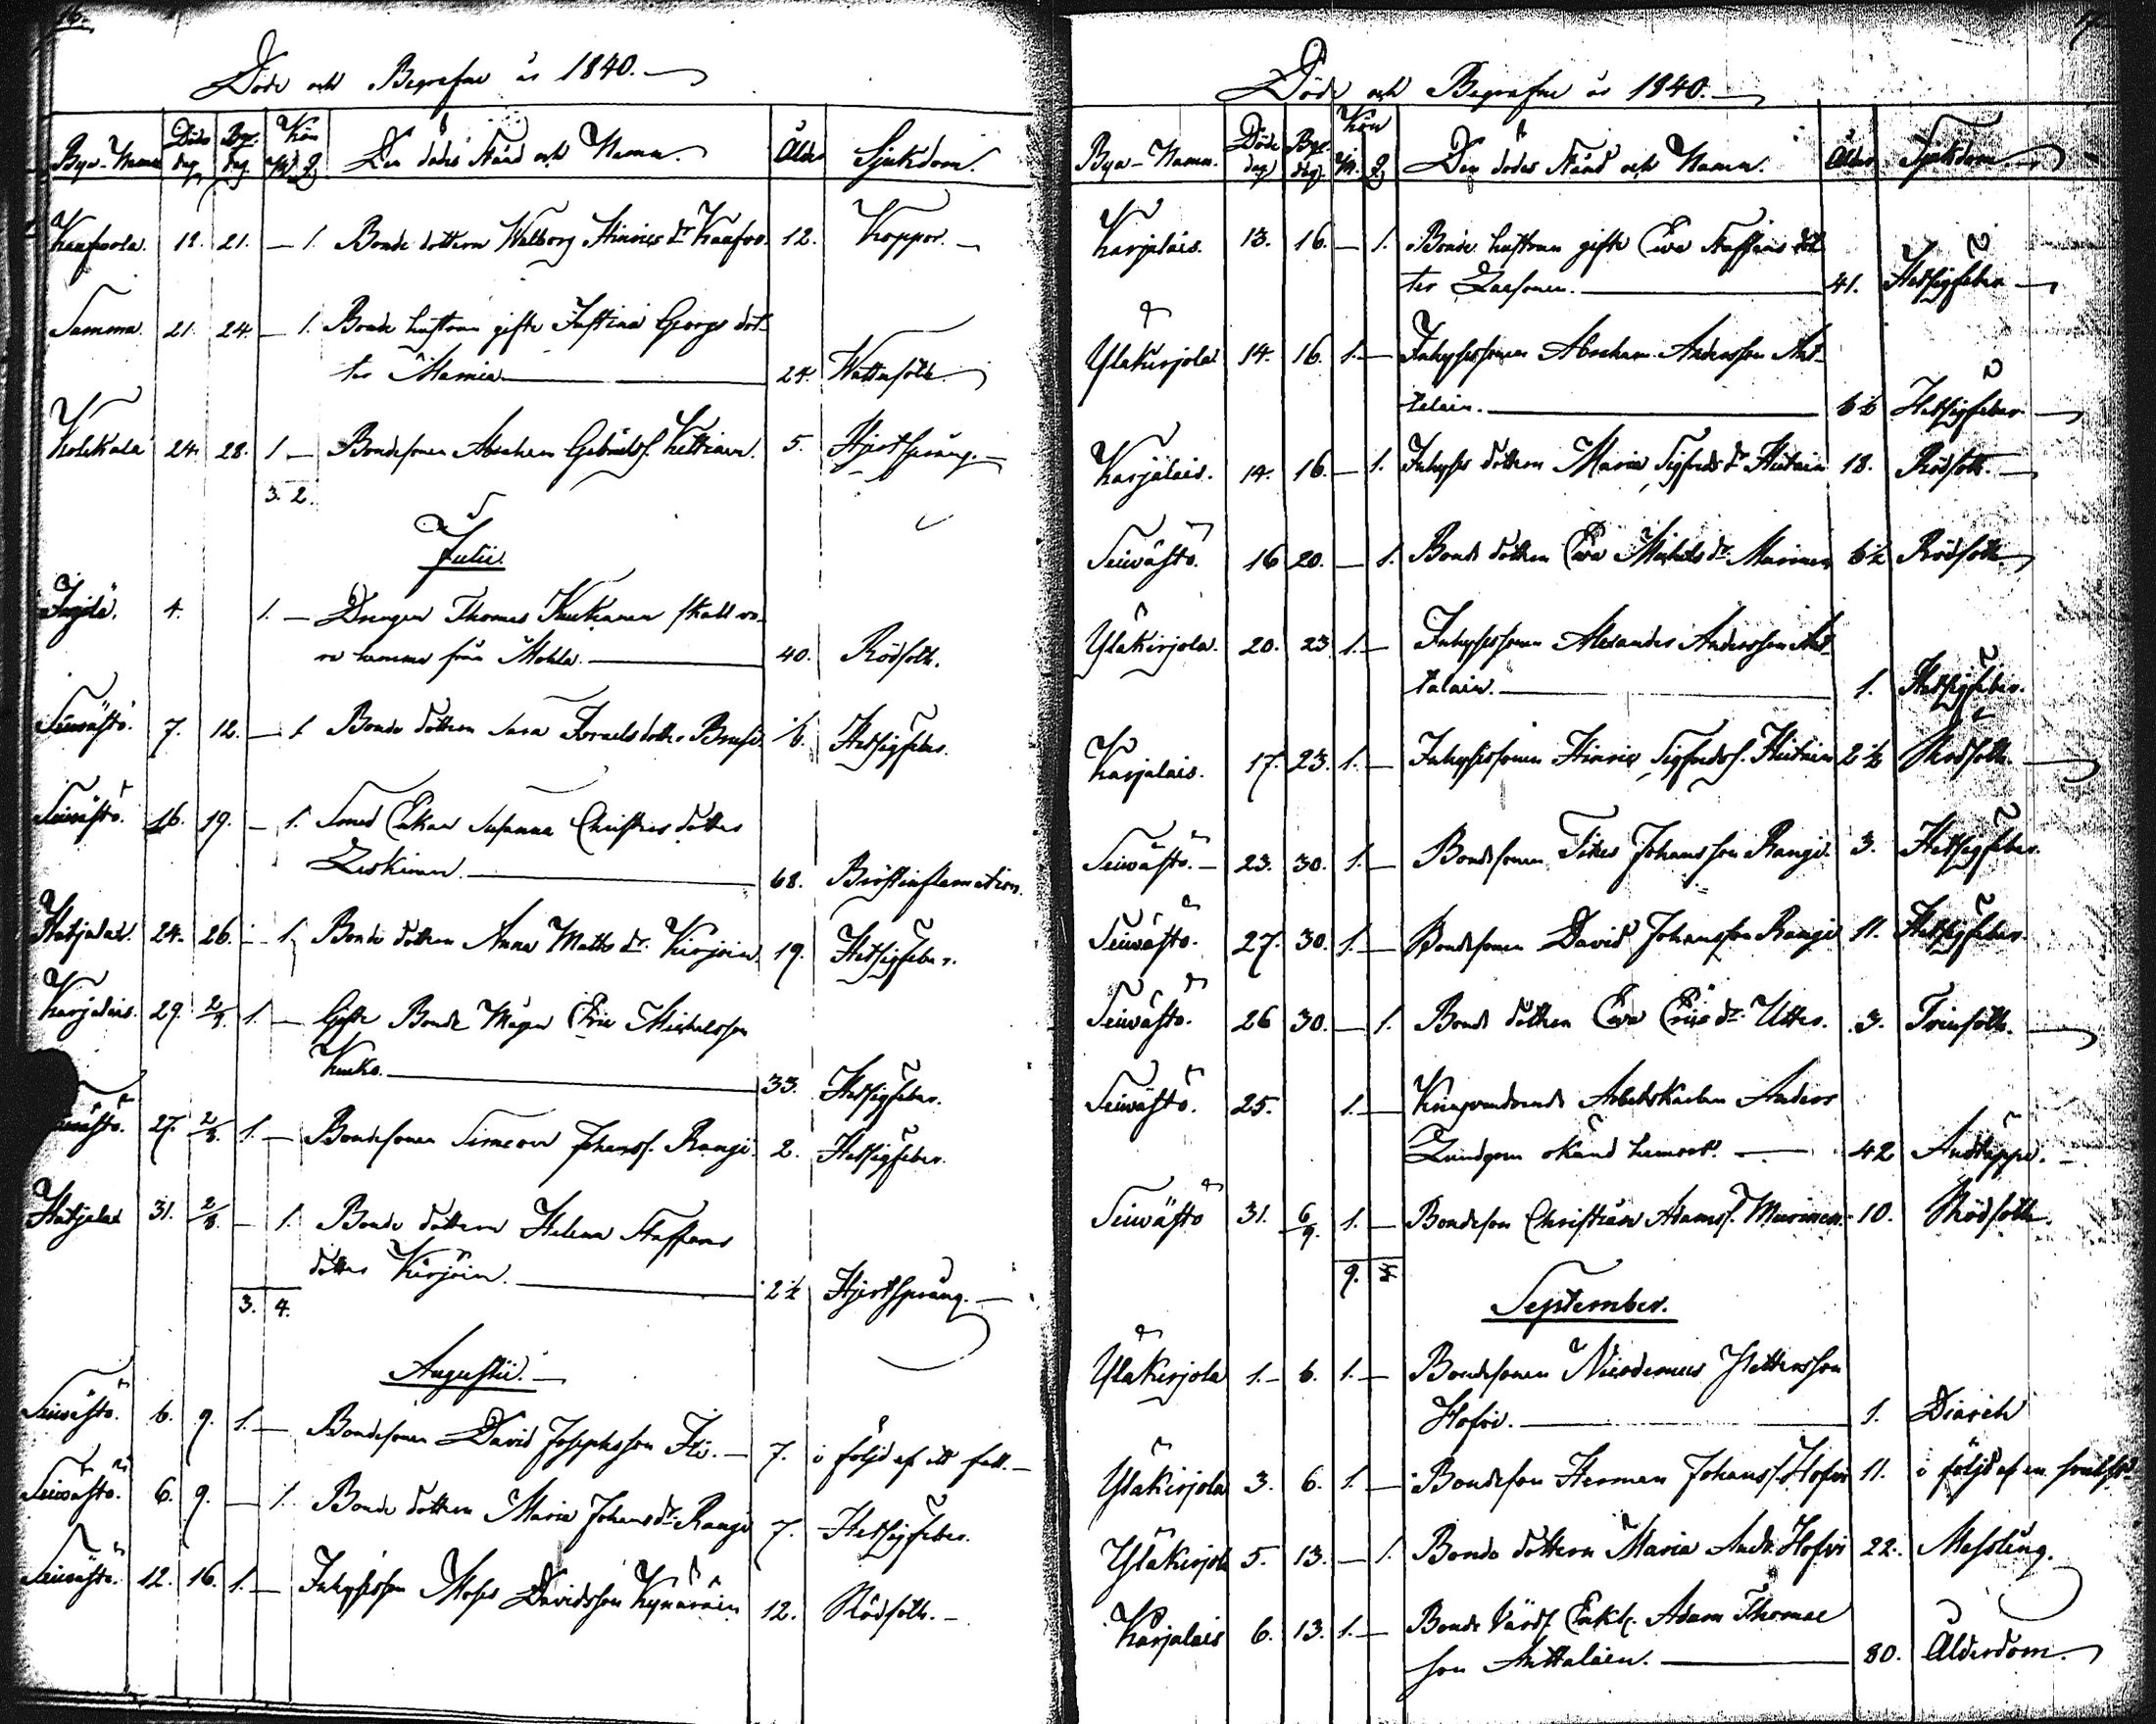 16.
Döde och Begrafne år 1840.
Bya-Namn Döds dag Begr. dag Kön M. Q. Den dödes Stånd och Namn. Ålder Sjukdom.
12. 21. — 1. Bonde dottern Walborg Hinrics dr 12. Koppor.
Samma. 21. 24. — 1. Bonde hustrun gifte Justina Georgs dot-
ter 24. Wattusott.
Kolckala 24. 28. 1. — Bondesonen Abraham Gabrielss. 5. Hjertsprång.
3. 2.
Julii.
4. 1. — Drengen Thomas Kukanen skall va-
ra hemma från Mohla. 40. Rödsoth.
Seivästö. 7. 12. — 1. Bonde dottern Sara Israels dotter ½. Hetsigfeber.
Seivästö. 16. 19. — 1. Enkan Susanna Christers dotter
Leskinen. 68. Bröstinflamation.
Hatjalax. 24. 26. — 1. Bonde dottern Anna Matts dr. 19. Hetsigfeber.
Karjalais. 29. 2/8. 1. — Gifte Bonde Mågen Eric Michelsson
33. Hetsigfeber.
27. 2/8. 1. — Bondesonen Simeon Johanss. Rangi. 2. Hetsigfeber.
Hatjalax 31. 2/8. — 1. Bonde dottern Helena Staffans
dotter 2½ Hjertsprång.
3. 4.
Augustii.
Seivästö. 6. 9. 1. — Bondesonen David Josephsson 7. i följd af ett fall.
Seivästö. 6. 9. — 1. Bonde dottern Maria Johans dr. Rangi 7. Hetsigfeber.
Seivästö. 12. 16. 1. — Inhyses son Moses Davidsson 12. Rödsoth.
17.
Döde och Begrafne år 1840.
Bya-Namn. Döde dag Begr. dag. Kön M. Q. Den dödes Stånd och Namn. Ålder Sjukdom
Karjalais. 13. 16. — 1. Bonde hustrun gifte Eva Staffans dot-
ter 41. Hetsigfeber
Yläkirjola 14. 16. 1. — Inhysessonen Abraham Andersson Ant-
talain. 6½ Hetsigfeber
Karjalais. 14. 16. — 1. Inhyses dottern Maria Sigfreds dr 18. Rödsoth.
Seivästö. 16 20. — 1. Bonde dottern Eva Michels dr. Murinen 6½ Rödsoth.
Yläkirjola. 20. 23 1. — Inhysessonen Alexander Andersson Ant-
talain. 1. Hetsigfeber.
Karjalais. 17. 23. 1. — Inhysessonen Hinric Sigfredss. 2½ Rödsoth.
Seivästö. 23. 30. 1. — Bondesonen Johansson Rangi. 3. Hetsigfeber.
Seivästö. 27. 30. 1. — Bondesonen David Johansson Rangi 11. Hetsigfeber.
Seivästö. 26 30. — 1. Bonde dottern Eva Erics dr. Utter. 3. Trinsoth.
Seivästö. 25. 1. — Kringvandrande Arbetskarlen Anders
Lundgren okänd hemort. 42 Andtäppa.
Seivästö 31. 6/9. 1. — Bondeson Christian Adamss. Murinen 10. Rödsoth.
9. 5.
September.
Yläkirjola 1. 6. 1. — Bondesonen Nicodemus Pettersson
Hofvi. 1. Diareh
Yläkirjola 3. 6. 1. — Bondeson Herman Johanss. Hofvi 11. i följd af en
Yläkirjola 5. 13. — 1. Bonde dottern Maria Hofvi 22. Messling.
Karjalais 6. 13. 1. — Bonde Enkl. Adam Thomas
son Anttalain. 80. Ålderdom.